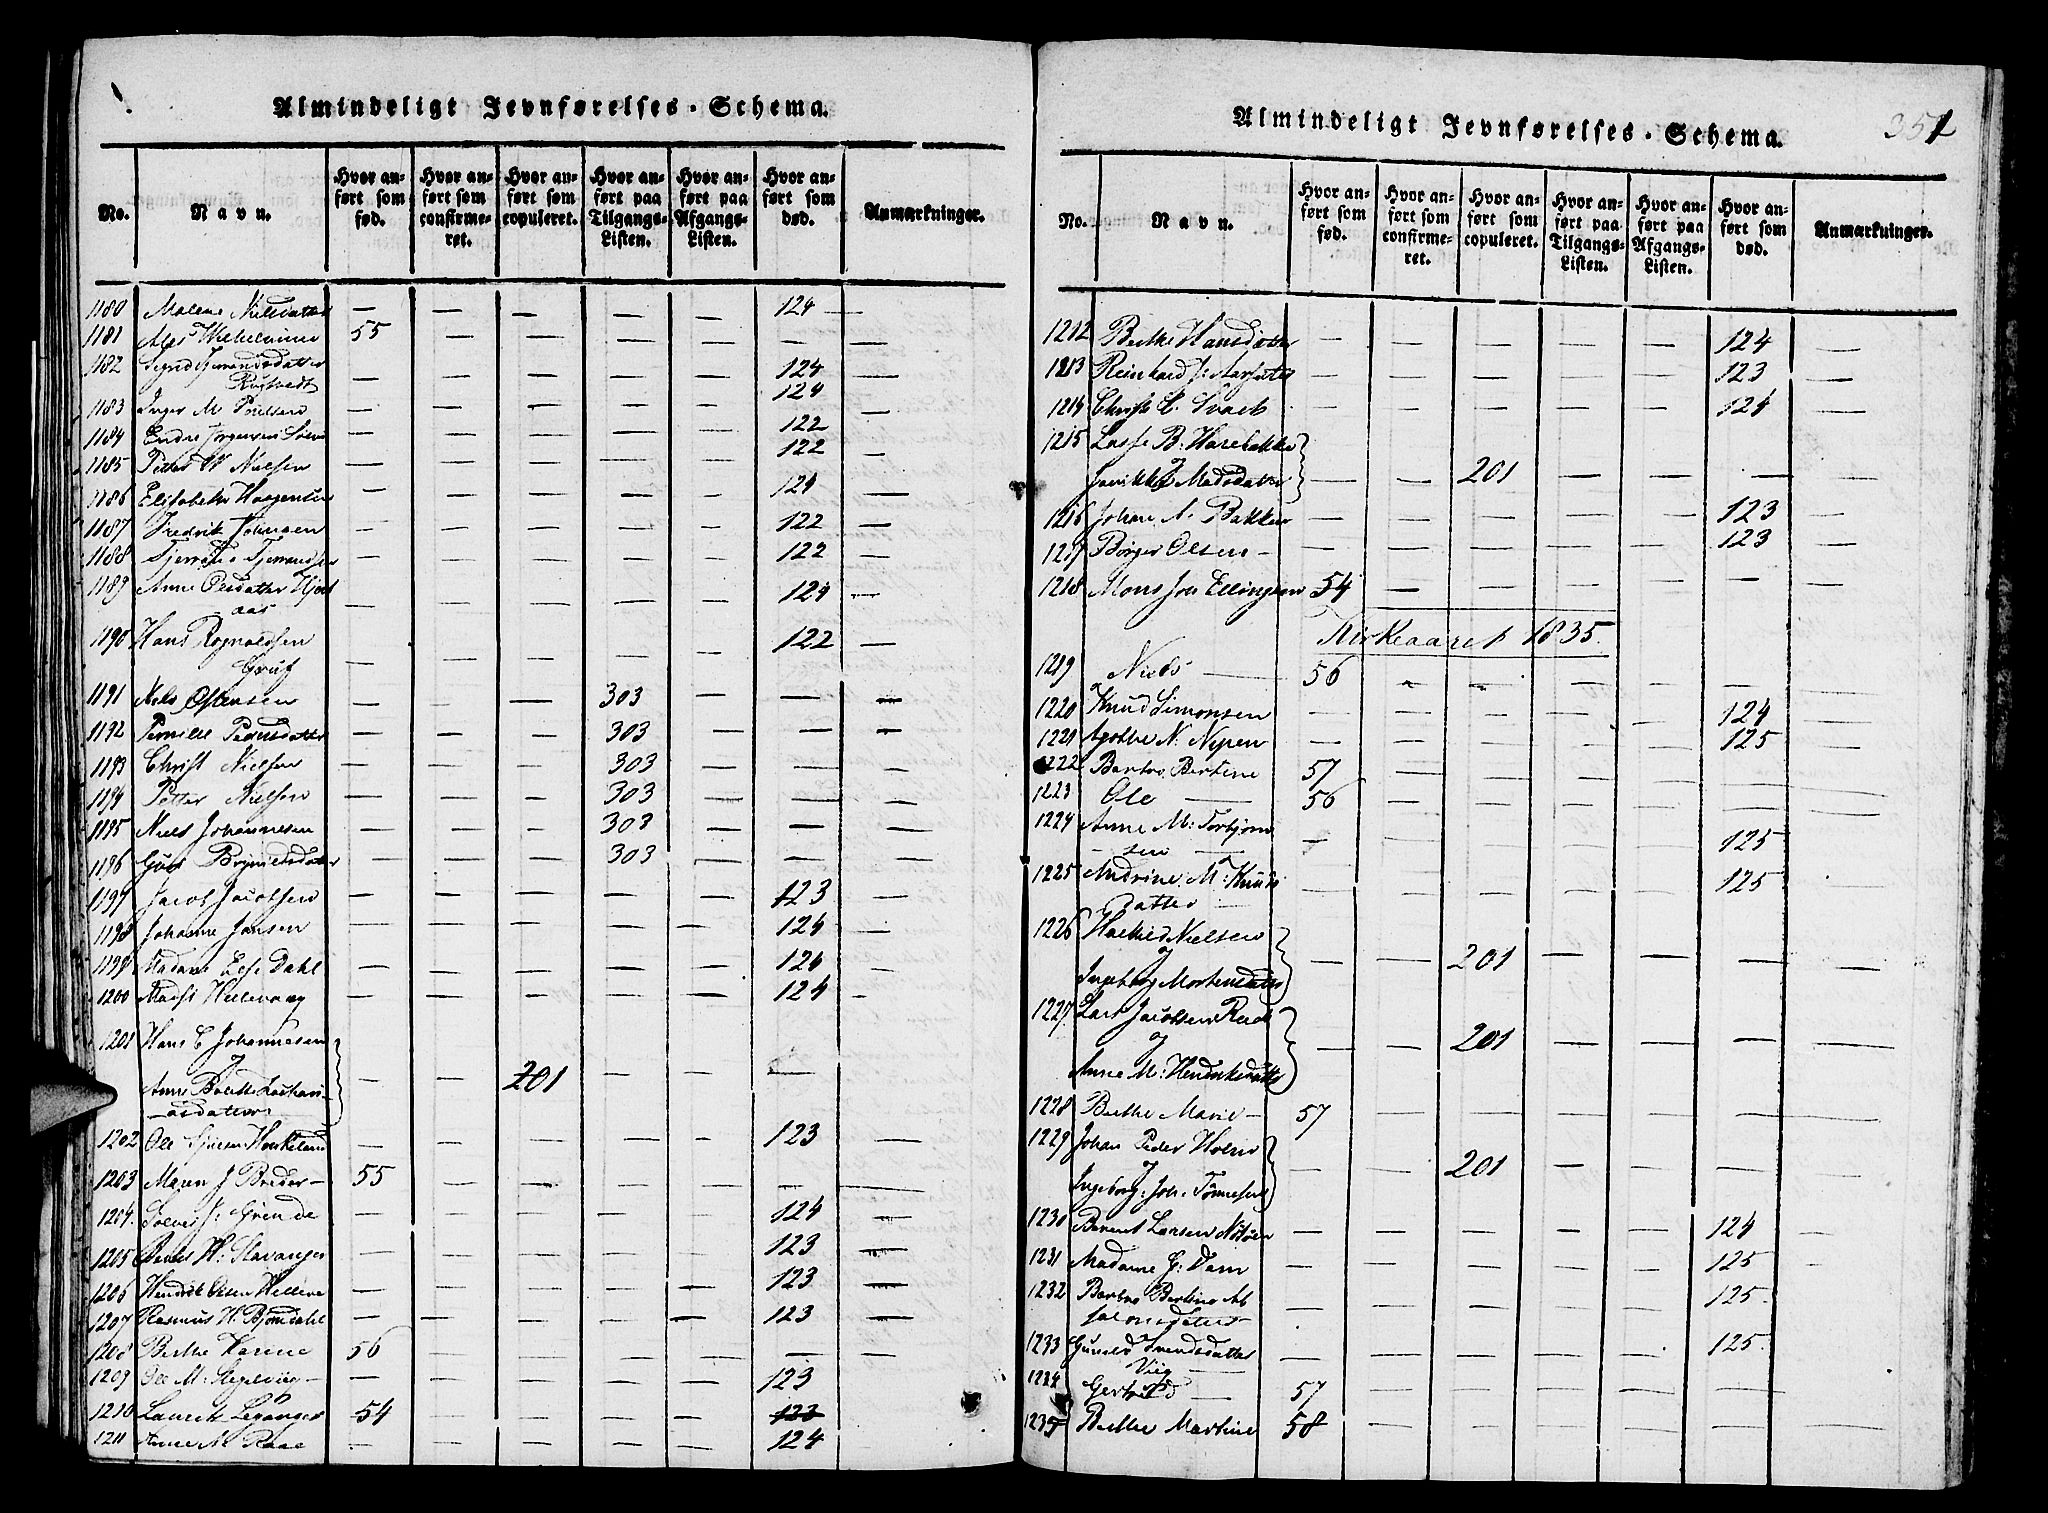 Almindeligt Jevnførelses-Schema.
No. Navn. Hvor anført som fød. Hvor anført som confirmeret. Hvor anført som copuleret. Hvor anført paa Tilgangs-Listen. Hvor anført paa Afgangs-Listen. Hvor anført som død. Anmærkninger.
1180 Malene Nielsdatter — — — — — 124 —
1181 Wilhelmine 55 — — — — — —
1182 124 —
— — — — — 124
1183 Inger M Poulsen — — — — — 124 —
1184 Endre Jørgensen — — — — — 122 —
1185 Petter W Nielsen — — — — — 122 —
1186 Elisabeths Haagensen — — — — — 124 —
1187 Fredrik Johnsen — — — — — 122 —
1188 — — — — — 122 —
1189 Anne Olsdatter Hjert
aas — — — — — 124 —
1190 Hans Rognaldsen — — — — — 122 —
1191 Nels Østensen — — — 303 — — —
1192 Pernille Pedersdatter — — — 303 — — —
1193 Christ Nielsen — — — 303 — — —
1194 Petter Nielsen — — — 303 — — —
1195 Niels Johannesen — — — 303 — — —
1196 — — — 303 — — —
1197 Jacob Jacobsen — — — — — 123 —
1198 Johanne Jansen — — — — — 124 —
1199 Madame Else Dahl — — — — — 124 —
1200 Mads Hellevaag — — — — — 124 —
1201 Hans C Johannesen
og — — 201 — — — —
Anne Bolette Zachari-
asdatter
1202 Ole — — — — — 123 —
1203 Maren J Breder — 55 — — — — — —
1204. — — — — — 124 —
1205 H: Stavanger — — — — — 123 —
1206 Hendrik Olsen Helleve — — — — — 123 —
1207 Rasmus H. Bjørndahl — — — — — 123 —
1208 Berthe Karine 56 — — — — — —
1209 Ole M: — — — — — 123
1210 Laurits Leganger 54 — — — — 123 —
1211 Anne M Raae — — — — — 124 —
Almindeligt Jevnførelses-Schema. 351
No. Navn. Hvor anført som fød. Hvor anført som confirmeret. Hvor anført som copuleret. Hvor anført paa Tilgangs-Listen. Hvor anført paa Afgangs-Listen. Hvor anført som død. Anmærkninger.
1212 Berthe Hansdatter — — — — — 124 —
1213 Reinhard J: — — — — — 123 —
1214 — — — — — 124 —
1215 Lasse B: Harebakke
og — — 201 — — — —
Madsdatter
1216 Johan A. Bakken — — — — — 123 —
1217 Børger Olsen — — — — — 123 —
1218 Mons Joh Ellingsen 54 — — — — — —
Kirkeaaret 1835.
1219 Niels — 56 — — — — — —
1220 Knud Simonsen — — — — — 124 —
1221 Agathe N: Nipen — — — — — 125 —
1222 Barbro Bertine 57 — — — — — —
1223 Ole — 56 — — — — — —
1224 Anne M: Torbjørn
sen — — — — — — 125
1225 Andrine M: Knuds
datter — — — — — — 125
1226 Nielsen
og — — 201 — — — —
Ingeborg Mortensdatter
1227 Lars Jacobsen
og — — 201 — — — —
Anne M: Hendriksdatter
1228 Berthe Marie — 57 — — — — — —
1229 Johan Peder Holm
og — — 201 — — — —
Ingeborg: Joh: Tønnesen
1230 Berent Larsen — — — — — 124 —
1231 Madame G: Dam — — — — — 125
1232 Barbro Bertine Ab
salonsdatter — — — — — — 125.
1233 Gunild Svendsdatter — — — — — 125.
Viig —
1234 Gertrud 57 — — — — — —
1235 Berthe Martine 58 — — — — — —